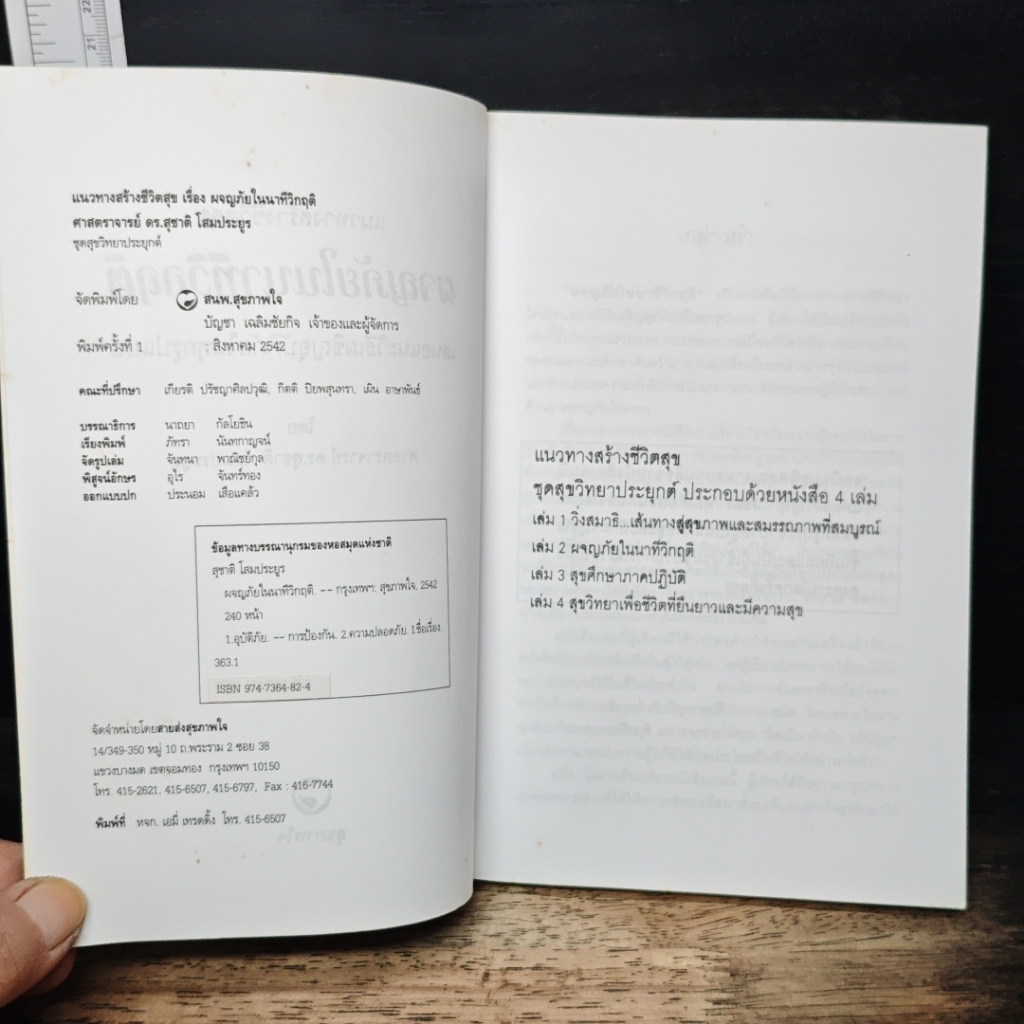 22
21
แนวทางสร้างชีวิตสุข เรื่อง ผจญภัยในนาทีวิกฤติ
ศาสตราจารย์ ดร.สุชาติ โสมประยูร
ชุดสุขวิทยาประยุกต์
จัดพิมพ์โดย สนพ.สุขภาพใจ
บัญชา เฉลิมชัยกิจ เจ้าของและผู้จัดการ
พิมพ์ครั้งที่ 1 สิงหาคม 2542
คณะที่ปรึกษา เกียรติ ปรัชญาศิลปวุฒิ, กิตติ ปิยพสุนทรา, เผิน อาษาพันธ์
บรรณาธิการ นาถยา กัลโยธิน
เรียงพิมพ์ ภัทรา นันทกาญจน์
จัดรูปเล่ม จันทนา พาณิชย์กุล
พิสูจน์อักษร อุไร จันทร์ทอง
ออกแบบปก ประนอม เสือแคล้ว
ข้อมูลทางบรรณานุกรมของหอสมุดแห่งชาติ
สุชาติ โสมประยูร
ผจญภัยในนาทีวิกฤติ. -- กรุงเทพฯ: สุขภาพใจ, 2542
240 หน้า
1.อุบัติภัย. -- การป้องกัน. 2.ความปลอดภัย. I.ชื่อเรื่อง.
363.1
ISBN 974-7364-82-4
จัดจำหน่ายโดยสายส่งสุขภาพใจ
14/349-350 หมู่ 10 ถ.พระราม 2 ซอย 38
แขวงบางมด เขตจอมทอง กรุงเทพฯ 10150
โทร. 415-2621, 415-6507, 415-6797, Fax : 416-7744
พิมพ์ที่ หจก. เอมี่ เทรดดิ้ง โทร. 415-6507
แนวทางสร้างชีวิตสุข
ชุดสุขวิทยาประยุกต์ ประกอบด้วยหนังสือ 4 เล่ม
เล่ม 1 วิ่งสมาธิ...เส้นทางสู่สุขภาพและสมรรถภาพที่สมบูรณ์
เล่ม 2 ผจญภัยในนาทีวิกฤติ
เล่ม 3 สุขศึกษาภาคปฏิบัติ
เล่ม 4 สุขวิทยาเพื่อชีวิตที่ยืนยาวและมีความสุข